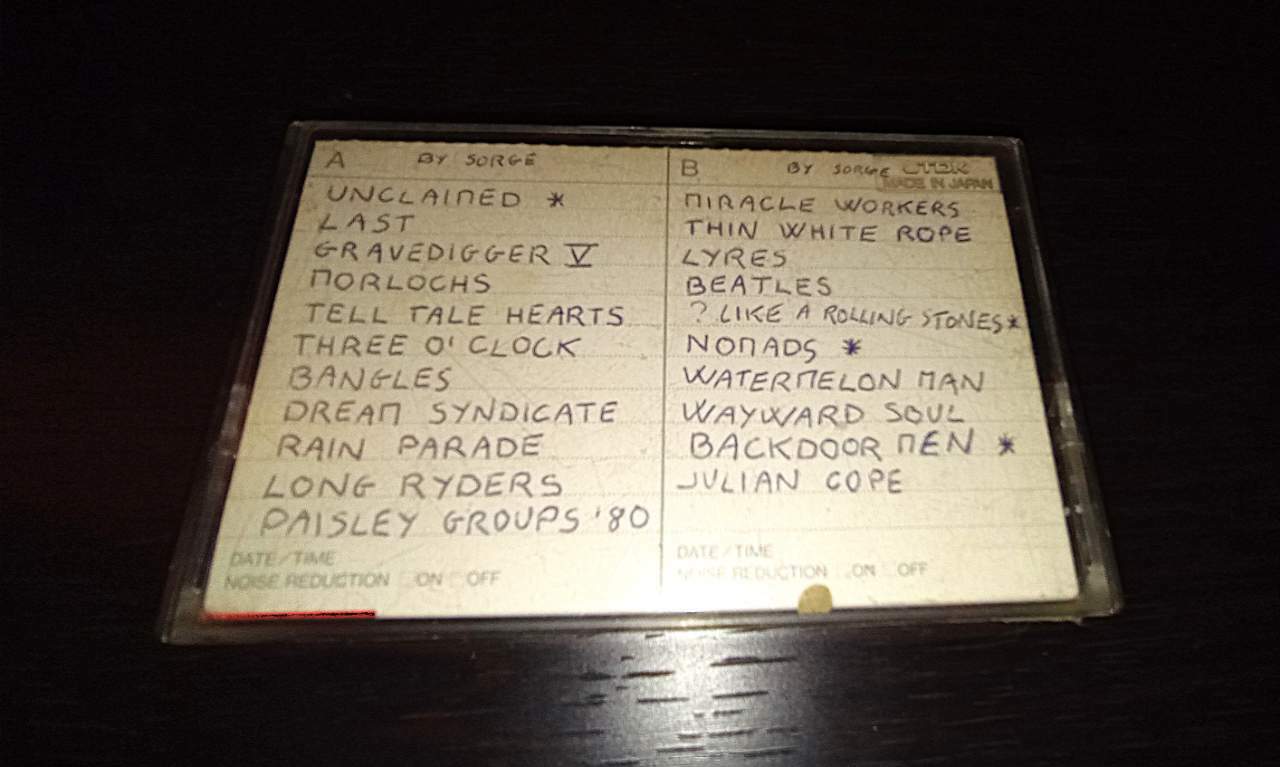 A BY SORGE
UNCLAIMED *
LAST
GRAVEDIGGER V
MORLOCHS
TELL TALE HEARTS
THREE O'CLOCK
BANGLES
DREAM SYNDICATE
RAIN PARADE
LONG RYDERS
PAISLEY GROUPS '80
DATE/TIME
NOISE REDUCTION ON OFF
B BY SORGE TDK
MADE IN JAPAN
MIRACLE WORKERS
THIN WHITE ROPE
LYRES
BEATLES
? LIKE A ROLLING STONES *
NOMADS *
WATERMELON MAN
WAYWARD SOUL
BACKDOOR MEN *
JULIAN COPE
DATE/TIME
NOISE REDUCTION ON OFF